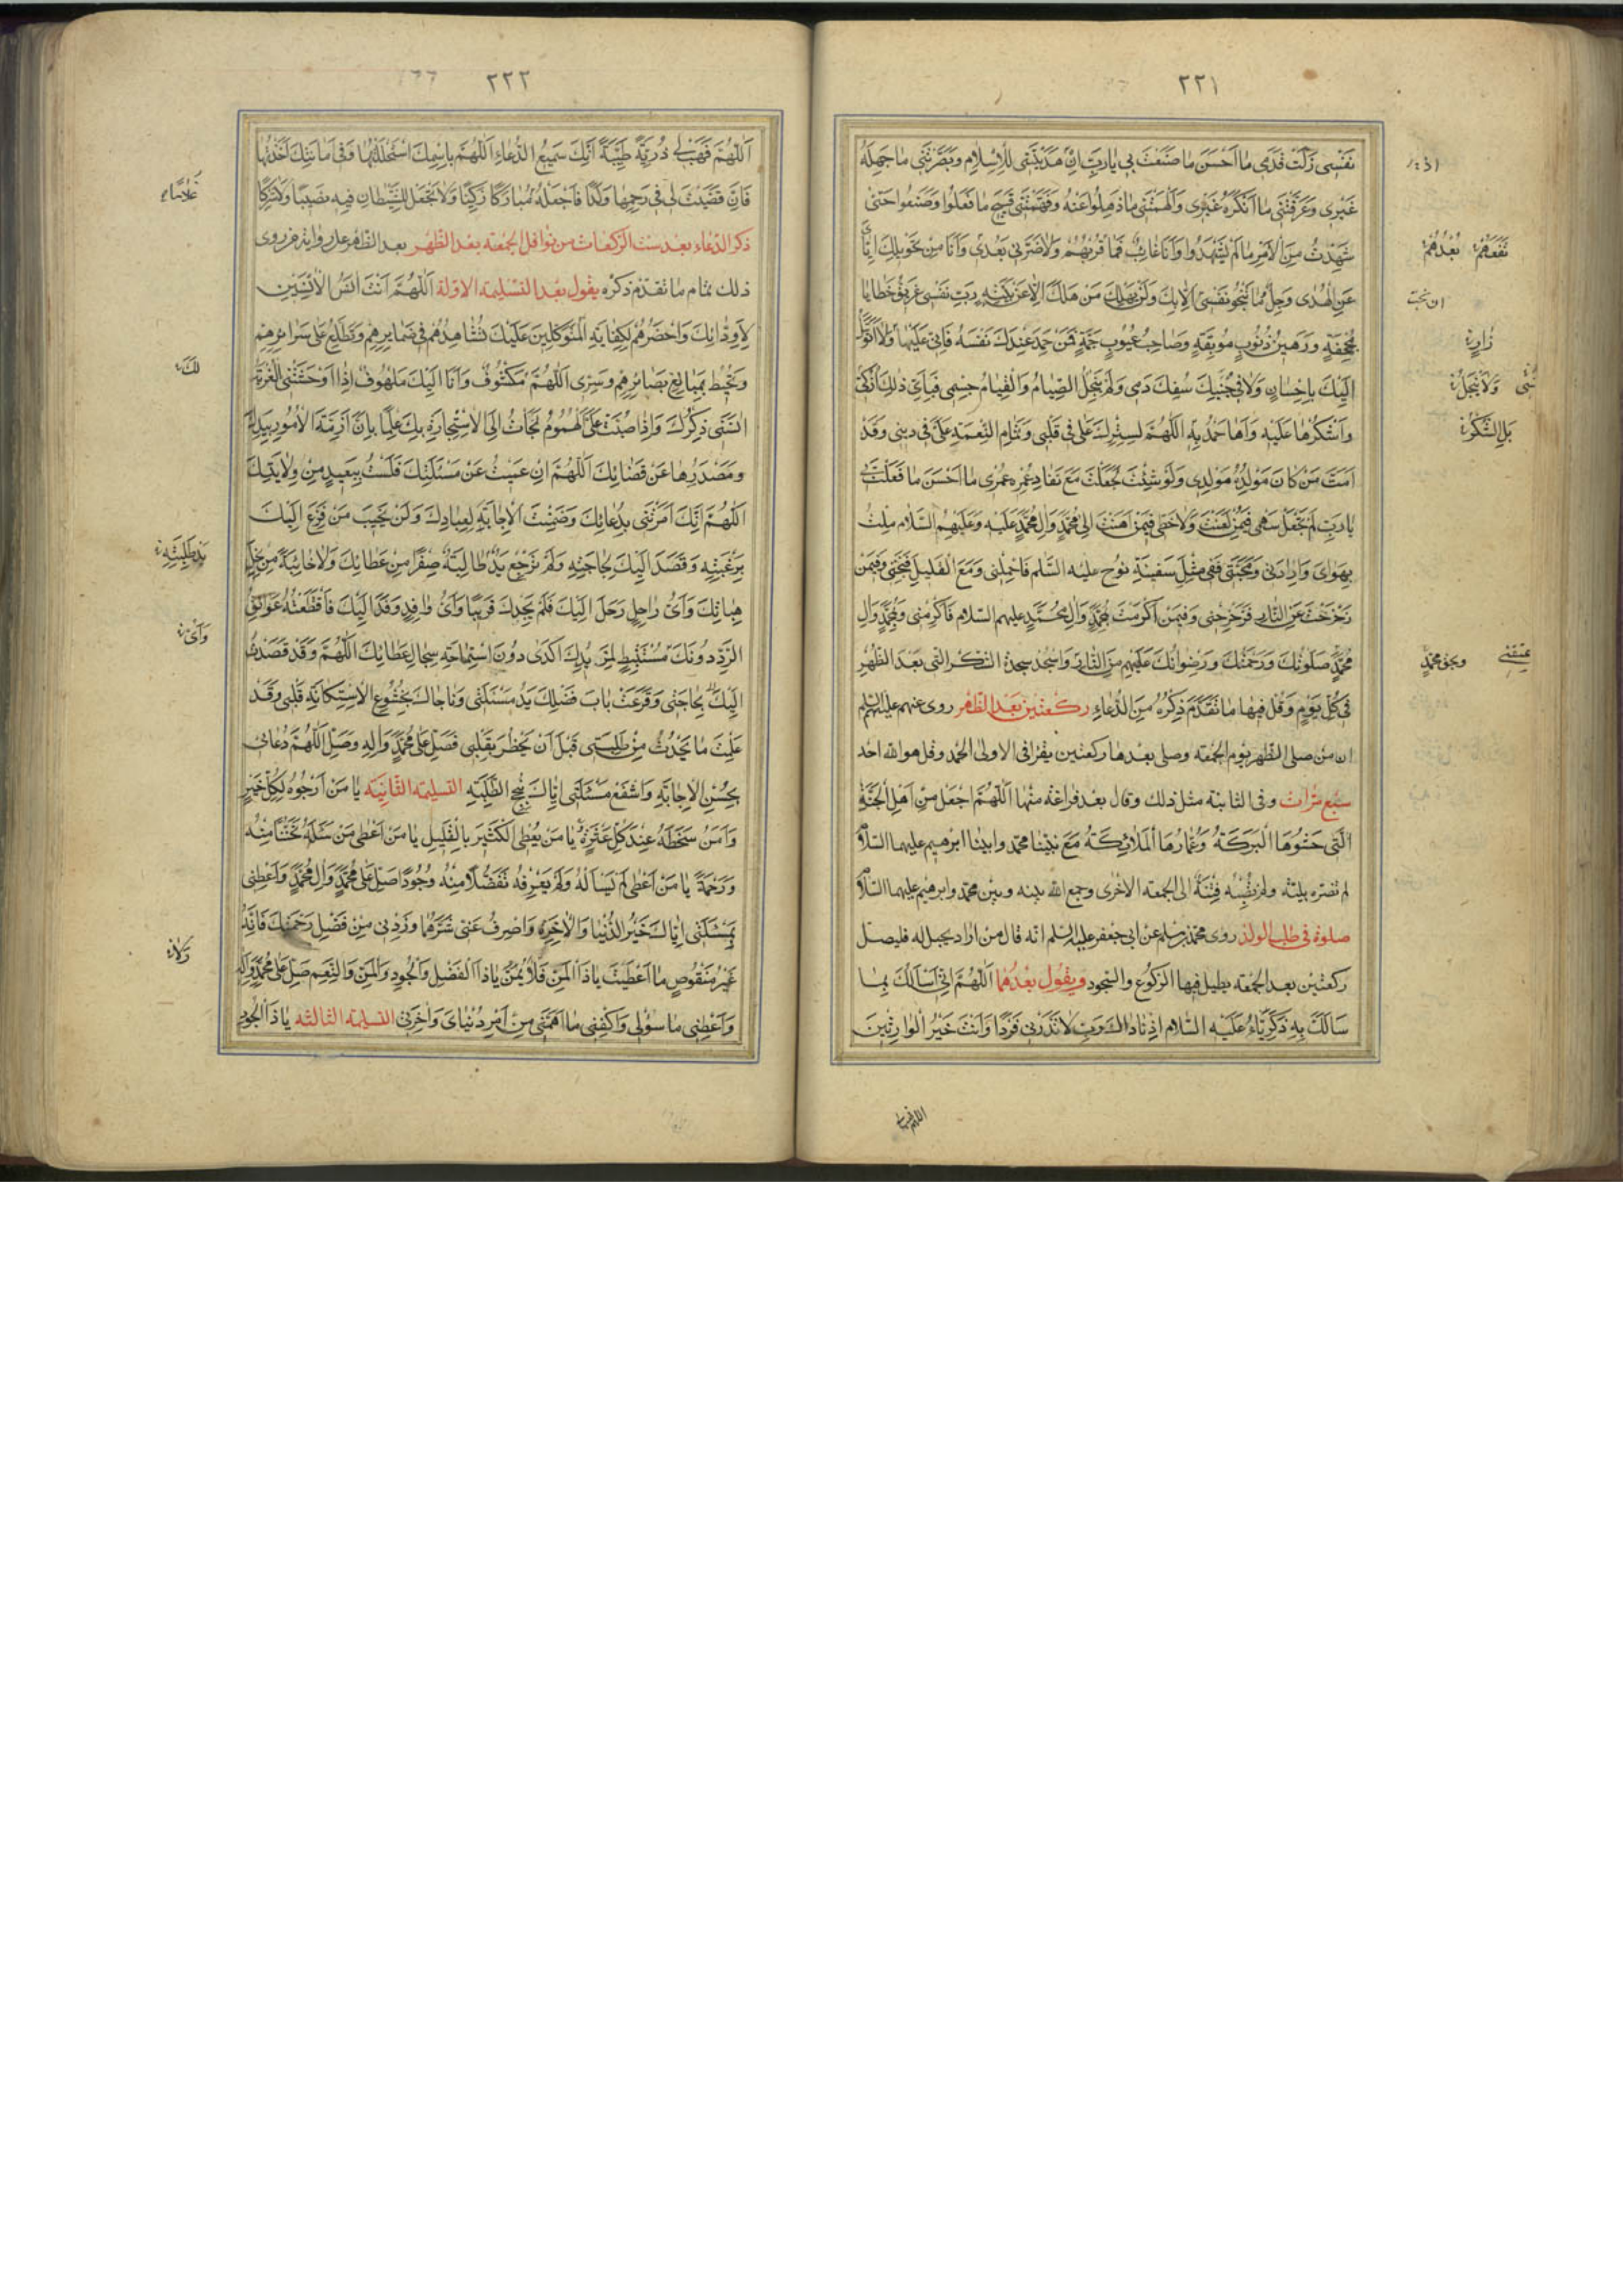 ٢٢١
نَفْسِى زَلَّتْ قَدَمى ما اَحْسَنَ ما صَنَعْتَ بى يا رَبِّ اِنْ هَدَيْتَنى لِلْاِسْلامِ وَبَصَّرْتَنى ما جَهِلَهُ
غَيْرى وَعَرَّفْتَنى ما اَنْكَرَهُ غَيْرى وَاَلْهَمْتَنى ما ذَهِلُوا عَنْهُ وَفَهَّمْتَنى قَبيحَ ما فَعَلُوا وَصَنَعُوا حَتّى
شَهِدْتُ مِنَ الْاَمْرِ ما لَمْ يَشْهَدُوا وَاَنَا غائِبٌ فَما قُرْبُهُمْ وَلا ضَرَّنى بُعْدى وَاَنَا مِنْ تَحْويلِكَ اِيّاىَ
عَنِ الْهُدى وَجِلٌ وَما تَنْجُو نَفْسى اِلّا بِكَ وَلَنْ يَهْلِكَ مَنْ هَلَكَ اِلّا عَنْ بَيِّنَةٍ رَبِّ نَفْسى غَريقُ خَطايا
مُجْحِفَةٍ وَرَهينُ ذُنُوبٍ مُوبِقَةٍ وَصاحِبُ عُيُوبٍ جَمَّةٍ فَمَنْ حَمِدَ عِنْدَكَ نَفْسَهُ فَاِنّى عَلَيْها وَلا اَتَوَسَّلُ
اِلَيْكَ بِاِحْسانٍ وَلا فى جَنْبِكَ سُفِكَ دَمى وَلَمْ يُنْحِلِ الصِّيامُ وَالْقِيامُ جِسْمى فَبِاَىِّ ذٰلِكَ اُزَكّى
وَاَشْكُرُها عَلَيْهِ وَاَهاحْمَدُ بِهِ اَللّهُمَّ لِسِتْرِكَ عَلى ما فى قَلْبى وَتَمامِ النِّعْمَةِ عَلَىَّ فى دينى وَقَدْ
اَمَتَّ مَنْ كانَ مَوْلِدُهُ مَوْلِدى وَلَوْ شِئْتَ لَجَعَلْتَ مَعَ نَفادِ عُمْرِهِ عُمْرى ما اَحْسَنَ ما فَعَلْتَ بى
يا رَبِّ لَمْ تَجْعَلْ سَهْمى فيمَنْ لَعَنْتَ وَلا حَظّى فيمَنْ اَهَنْتَ اِلى مُحَمَّدٍ وَآلِ مُحَمَّدٍ عَلَيْهِ وَعَلَيْهِمُ السَّلامُ مِلْتُ
بِهَواىَ وَاِرادَتى وَمَحَبَّتى فَفى مِثْلِ سَفينَةِ نُوحٍ عليه السَّلم فَاحْمِلْنى وَمَعَ الْقَليلِ فَنَجِّنى وَفيمَنْ
زَحْزَحْتَ عَنِ النّارِ فَزَحْزِحْنى وَفيمَنْ اَكْرَمْتَ بِمُحَمَّدٍ وَآلِ مُحَمَّدٍ عليهم السّلام فَاَكْرِمْنى وَبِمُحَمَّدٍ وَآلِ
مُحَمَّدٍ صَلَواتُكَ وَرَحْمَتُكَ وَرِضْوانُكَ عَلَيْهِمْ مِنَ النّارِ وَاسْجُدْ سجدة الشكر التى بَعْدَ الظُّهْرِ
فى كُلِّ يَوْمٍ وَقُلْ فيها ما تَقَدَّمَ ذِكْرُهُ مِنَ الدُّعاءِ ركعتين بعد الظهر روى عنهم عليهم السلم
ان من صلى الظهر يوم الجمعة وصلى بعدها ركعتين يقرأ فى الاولى الحمد وقل هو الله احد
سبع مرّات وفى الثانية مثل ذلك وقال بعد فراغه منها اَللّهُمَّ اجْعَلْ مِنْ اَهْلِ الْجَنَّةِ
الَّتى حَشْوُهَا الْبَرَكَةُ وَعُمّارُهَا الْمَلائِكَةُ مَعَ نَبِيِّنا محمد وابينا ابرهيم عليهما السّلام
لم تضره بلية ولم تصبه فِتْنَةٌ الى الجمعة الاخرى وجمع الله بينه وبين محمد وابرهيم عليهما السّلام
صلوة فى طلب الولد روى محمد بن مسلم عن ابى جعفر عليه السلم انه قال من اراد يحبل له فليصل
ركعتين بعد الجمعة يطيل فيها الرّكوع والسّجود ويقول بعدهما اَللّهُمَّ اِنّى اَسْاَلُكَ بِما
سَاَلَكَ بِهِ زَكَرِيّاءُ عَلَيْهِ السّلام اِذْ ناداكَ رَبِّ لا تَذَرْنى فَرْدًا وَاَنْتَ خَيْرُ الْوارِثينَ
نَفَعَهُمْ
بُعْدُهُمْ
وَلا يُنْحِلُ
بَلِ الشُّكْرُ
وبحق محمد
اللهم فهب لى
٢٢٢
اَللّهُمَّ فَهَبْ لى ذُرِّيَّةً طَيِّبَةً اِنَّكَ سَميعُ الدُّعاءِ اَللّهُمَّ بِاسْمِكَ اسْتَحْلَلْتُها وَفى اَمانَتِكَ اَخَذْتُها
فَاِنْ قَضَيْتَ لى فى رَحِمِها وَلَدًا فَاجْعَلْهُ مُبارَكًا زَكِيًّا وَلا تَجْعَلْ لِلشَّيْطانِ فيهِ نَصيبًا وَلا شِرْكًا
ذكر الدّعاء بعد ست الركعات من نوافل الجمعة بعد الظهر بعد الظهر على رواية من روى
ذلك تمام ما تقدّم ذكره يقول بعد التسليمة الاولة اَللّهُمَّ اَنْتَ آنَسُ الْآنِسينَ
لِاَوِدّائِكَ وَاَحْضَرُهُمْ لِكِفايَةِ الْمُتَوَكِّلينَ عَلَيْكَ تُشاهِدُهُمْ فى ضَمايِرِهِمْ وَتَطَّلِعُ عَلى سَرائِرِهِمْ
وَتُحيطُ بِمَبالِغِ بَصائِرِهِمْ وَسِرّى اَللّهُمَّ مَكْشُوفٌ وَاَنَا اِلَيْكَ مَلْهُوفٌ اِذا اَوْحَشَتْنِى الْغُرْبَةُ
انَسَنى ذِكْرُكَ وَاِذا صُبَّتْ عَلَىَّ الْهُمُومُ لَجَاْتُ اِلَى الْاِسْتِجارَةِ بِكَ عِلْمًا بِاَنَّ اَزِمَّةَ الْاُمُورِ بِيَدِكَ
وَمَصْدَرُها عَنْ قَضائِكَ اَللّهُمَّ اِنْ عَمِيتُ عَنْ مَسْئَلَتِكَ فَلَسْتُ بِبَعيدٍ مِنْ وِلايَتِكَ
اَللّهُمَّ اِنَّكَ اَمَرْتَنى بِدُعائِكَ وَضَمِنْتَ الْاِجابَةَ لِعِبادِكَ وَلَنْ يَخيبَ مَنْ فَزِعَ اِلَيْكَ
بِرَغْبَتِهِ وَقَصَدَ اِلَيْكَ بِحاجَتِهِ وَلَمْ تَرْجِعْ يَدٌ طالِبَةٌ صِفْرًا مِنْ عَطائِكَ وَلا خائِبَةً مِنْ نِحَلِ
هِباتِكَ وَاَىُّ راحِلٍ رَحَلَ اِلَيْكَ فَلَمْ يَجِدْكَ قَريبًا وَاَىُّ وافِدٍ وَفَدَ اِلَيْكَ فَاقْتَطَعَتْهُ عَوائِقُ
الرَّدِّ دُونَكَ مُسْتَنْبِطٍ لِمَزيدِكَ اَكْدى دُونَ اسْتِماحَةِ سِجالِ عَطائِكَ اَللّهُمَّ وَقَدْ قَصَدْتُ
اِلَيْكَ بِحاجَتى وَقَرَعَتْ بابَ فَضْلِكَ يَدُ مَسْئَلَتى وَناجاكَ بِخُشُوعِ الْاِسْتِكانَةِ قَلْبى وَقَدْ
عَلِمْتَ ما يَحْدُثُ مِنْ طَلِبَتى قَبْلَ اَنْ يَخْطُرَ بِقَلْبى فَصَلِّ عَلى مُحَمَّدٍ وَآلِهِ وَصِلِ اللّهُمَّ دُعائى
بِحُسْنِ الْاِجابَةِ وَاشْفَعْ مَسْئَلَتى اِيّاكَ بِنُجْحِ الطَّلِبَةِ التسليمة الثّانية يا مَنْ اَرْجُوهُ لِكُلِّ خَيْرٍ
وَآمَنُ سَخَطَهُ عِنْدَ كُلِّ عَثْرَةٍ يا مَنْ يُعْطِى الْكَثيرَ بِالْقَليلِ يا مَنْ اَعْطى مَنْ سَئَلَهُ تَحَنُّنًا مِنْهُ
وَرَحْمَةً يا مَنْ اَعْطى مَنْ لَمْ يَسْاَلْهُ وَلَمْ يَعْرِفْهُ تَفَضُّلًا مِنْهُ وَجُودًا صَلِّ عَلى مُحَمَّدٍ وَآلِ مُحَمَّدٍ وَاَعْطِنى
بِمَسْئَلَتى اِيّاكَ خَيْرَ الدُّنْيا وَالْآخِرَةِ وَاصْرِفْ عَنّى شَرَّهُما وَزِدْنى مِنْ فَضْلِ رَحْمَتِكَ فَاِنَّهُ
غَيْرُ مَنْقُوصٍ ما اَعْطَيْتَ يا ذَا الْمَنِّ فَلا يُمَنُّ يا ذَا الْفَضْلِ وَالْجُودِ وَالْمَنِّ وَالنِّعَمِ صَلِّ عَلى مُحَمَّدٍ وَآلِهِ
وَاَعْطِنى ما سُؤْلى وَاكْفِنى ما اَهَمَّنى مِنْ اَمْرِ دُنْياىَ وَآخِرَتى التسليمة الثالثة يا ذَا الْجُودِ
غُلامًا
لَكَ
يَدُ طَلِبَتِهِ
وَاَىُّ